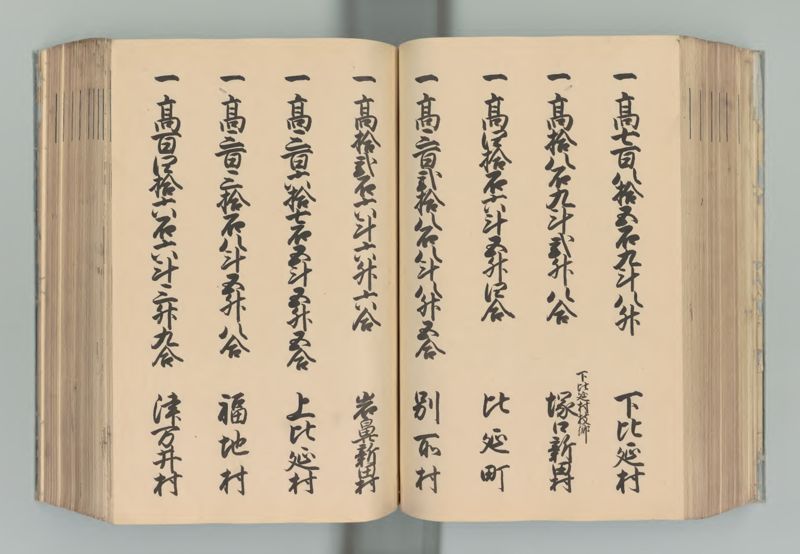 一 高七百八拾五石九斗八升 下比延村
下比延村枝郷
一 高拾八石九斗弐升八合 塚口新田村
一 高四拾石六斗五升四合 比延町
一 高三百弐拾八石八斗八升五合 別所村
一 高拾弐石六斗六升六合 岩鼻新田村
一 高三百六拾七石五斗五升五合 上比延村
一 高三百三拾石八斗五升八合 福地村
一 高百四拾六石六斗三升九合 津万井村